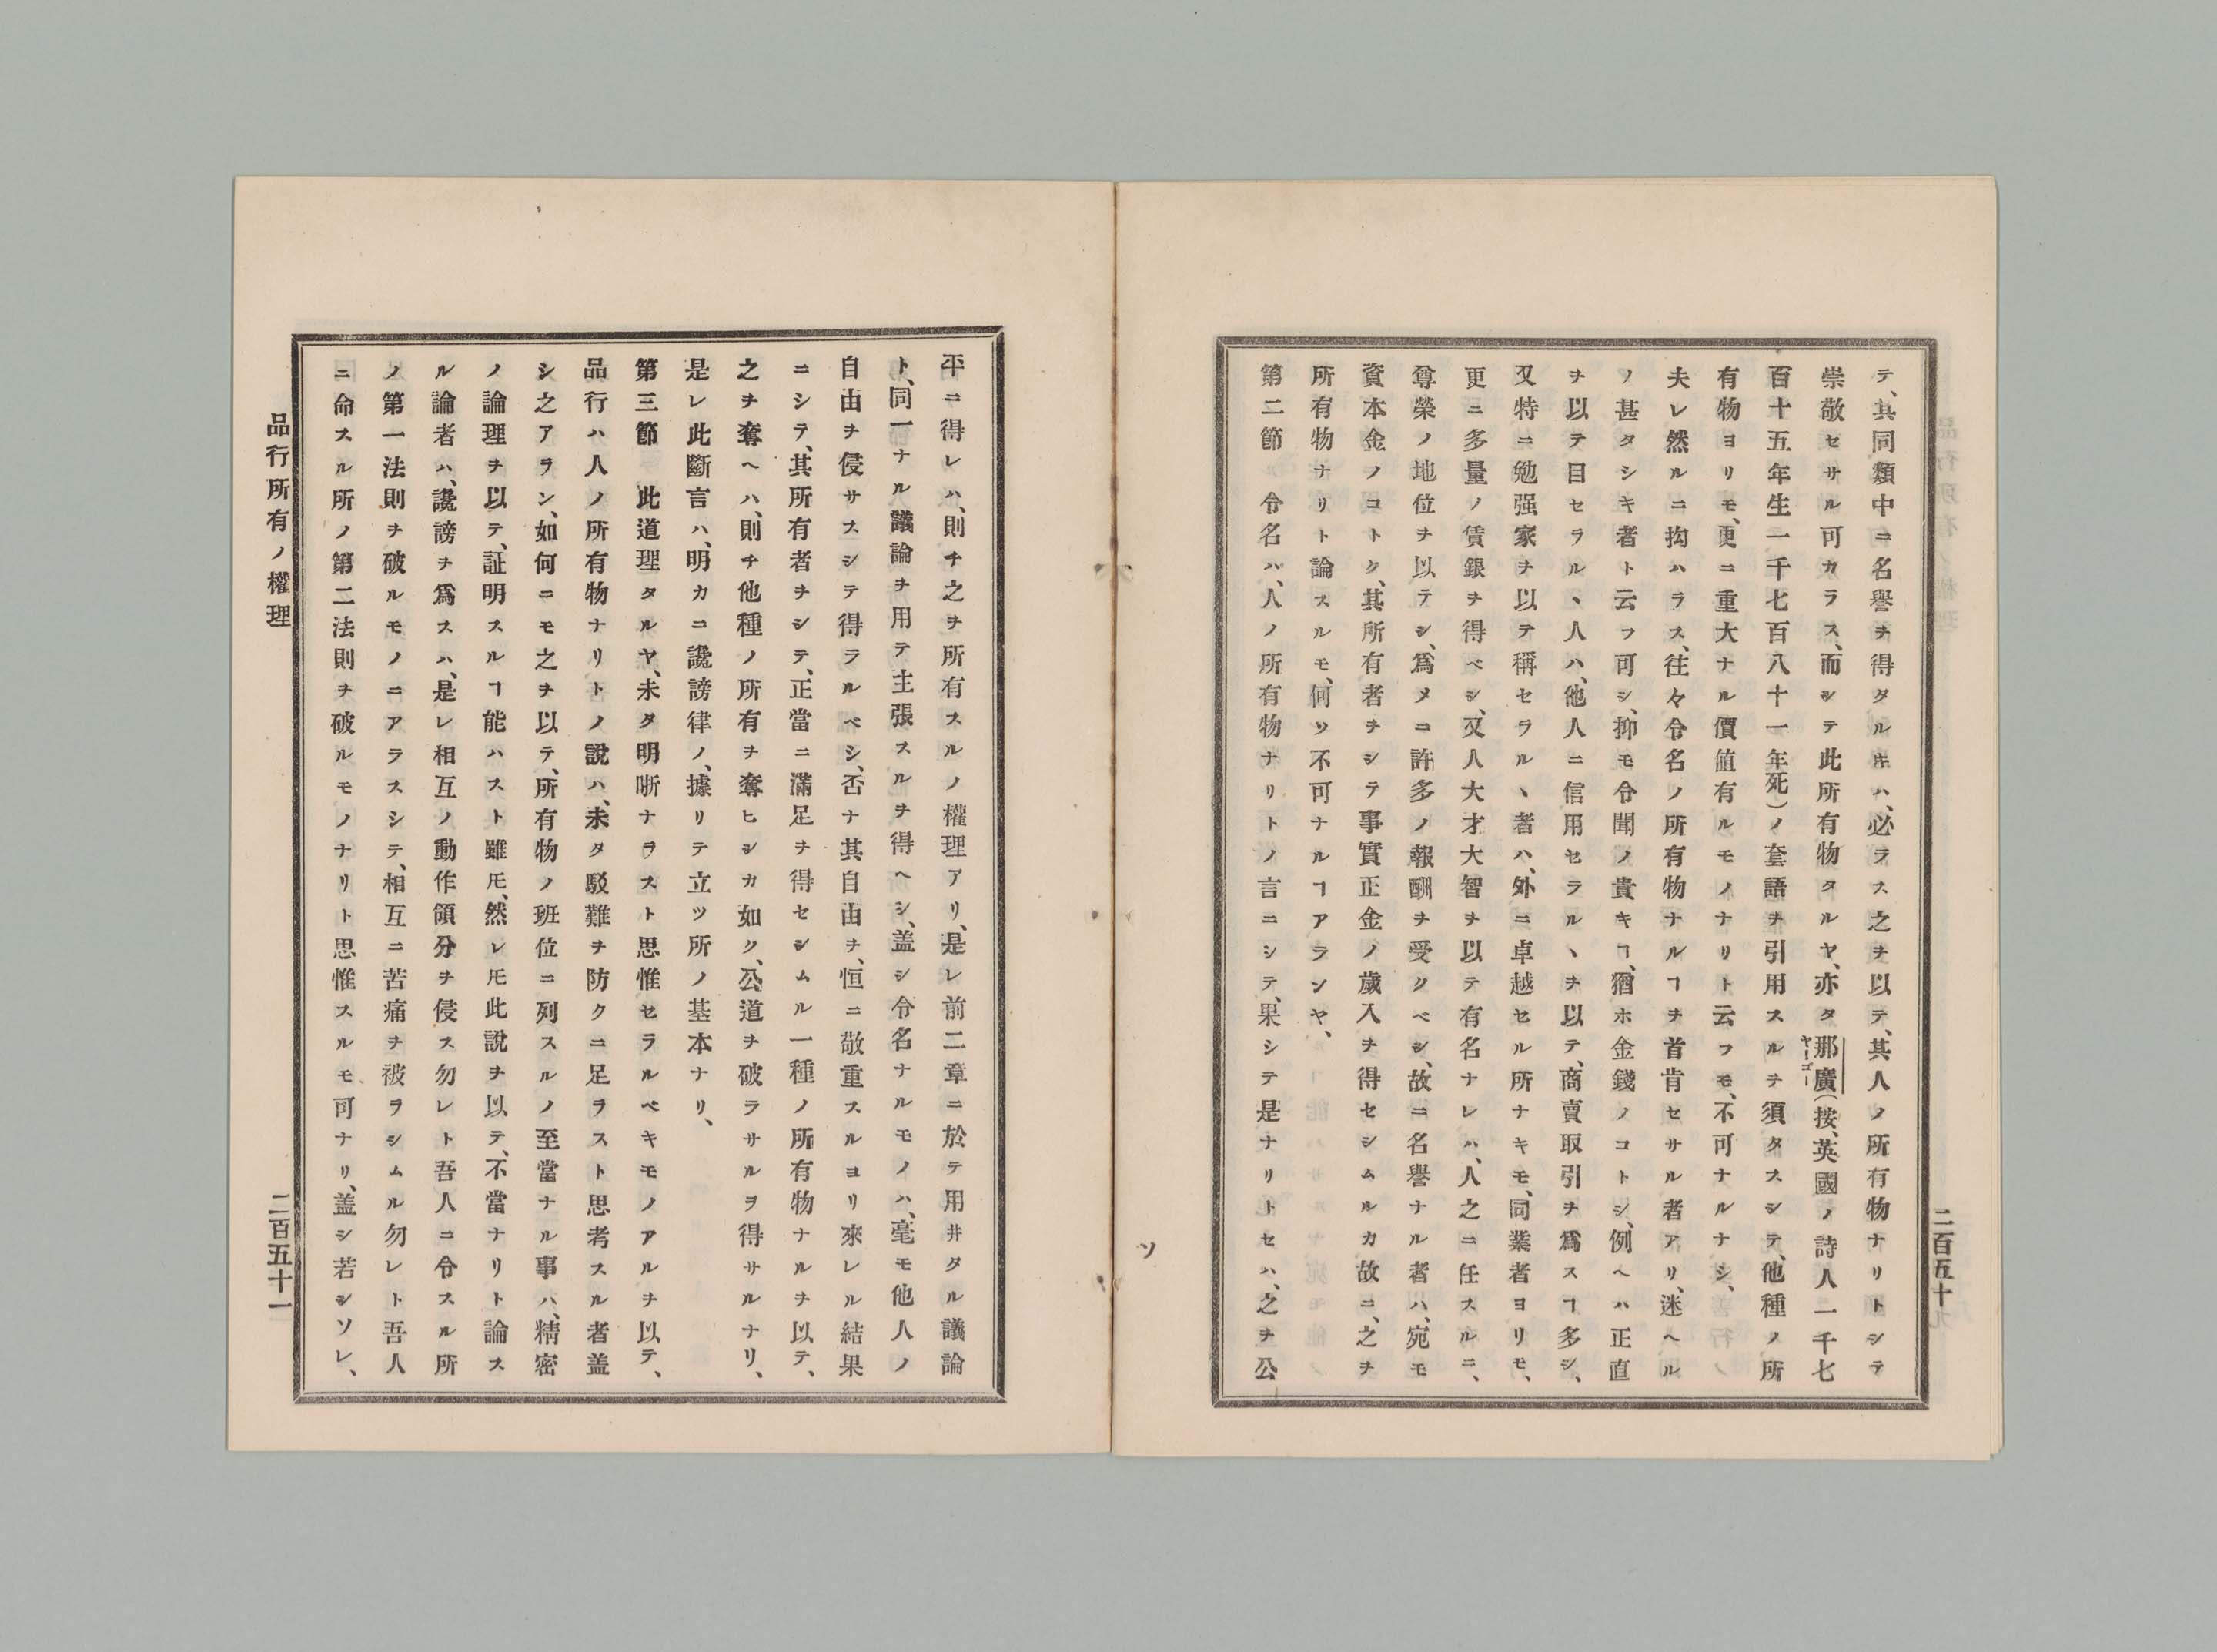 テ、其同類中ニ名譽ヲ得タルキハ、必ラス之ヲ以テ、其人ノ所有物ナリトシテ
崇敬セサル可カラス、而シテ此所有物タルヤ、亦タ那廣(按、英國ノ詩人一千七
ヤーゴー
百十五年生一千七百八十一年死)ノ套語ヲ引用スルヲ須タスシテ、他種ノ所
有物ヨリモ、更ニ重大ナル價値有ルモノナリト云フモ、不可ナルナシ、
夫レ然ルニ拘ハラス、往々令名ノ所有物ナルヿヲ首肯セサル者アリ、迷ヘル
ノ甚タシキ者ト云フ可シ、抑モ令聞ノ貴キヿ、猶ホ金錢ノコトシ、例ヘハ正直
ヲ以テ目セラルヽ人ハ、他人ニ信用セラルヽヲ以テ、商賣取引ヲ爲スヿ多シ、
又特ニ勉强家ヲ以テ稱セラルヽ者ハ、外ニ卓越セル所ナキモ、同業者ヨリモ、
更ニ多量ノ賃銀ヲ得ベシ、又人大才大智ヲ以テ有名ナレハ、人之ニ任スルニ、
尊榮ノ地位ヲ以テシ、爲メニ許多ノ報酬ヲ受クベシ、故ニ名譽ナル者ハ、宛モ
資本金ノコトク、其所有者ヲシテ事實正金ノ歲入ヲ得セシムルカ故ニ、之ヲ
所有物ナリト論スルモ、何ソ不可ナルヿアランヤ、
第二節　令名ハ、人ノ所有物ナリトノ言ニシテ、果シテ是ナリトセハ、之ヲ公
二百五十
ソ
平ニ得レハ、則チ之ヲ所有スルノ權理アリ、是レ前二章ニ於テ用井タル議論
ト、同一ナル議論ヲ用テ主張スルヲ得ヘシ、盖シ令名ナルモノハ、毫モ他人ノ
自由ヲ侵サスシテ得ラルベシ、否ナ其自由ヲ、恒ニ敬重スルヨリ來レル結果
ニシテ、其所有者ヲシテ、正當ニ滿足ヲ得セシムル一種ノ所有物ナルヲ以テ、
之ヲ奪ヘハ、則チ他種ノ所有ヲ奪ヒシカ如ク、公道ヲ破ラサルヲ得サルナリ、
是レ此斷言ハ、明カニ讒謗律ノ、據リテ立ツ所ノ基本ナリ、
第三節　此道理タルヤ、未タ明晣ナラスト思惟セラルベキモノアルヲ以テ、
品行ハ人ノ所有物ナリトノ說ハ、未タ駁難ヲ防クニ足ラスト思考スル者盖
シ之アラン、如何ニモ之ヲ以テ、所有物ノ班位ニ列スルノ至當ナル事ハ、精密
ノ論理ヲ以テ、証明スルヿ能ハスト雖𪜈、然レ𪜈此說ヲ以テ、不當ナリト論ス
ル論者ハ、讒謗ヲ爲スハ、是レ相互ノ動作領分ヲ侵ス勿レト吾人ニ令スル所
ノ第一法則ヲ破ルモノニアラスシテ、相互ニ苦痛ヲ被ラシムル勿レト吾人
ニ命スル所ノ第二法則ヲ破ルモノナリト思惟スルモ可ナリ、盖シ若シソレ、
品行所有ノ權理
二百五十一